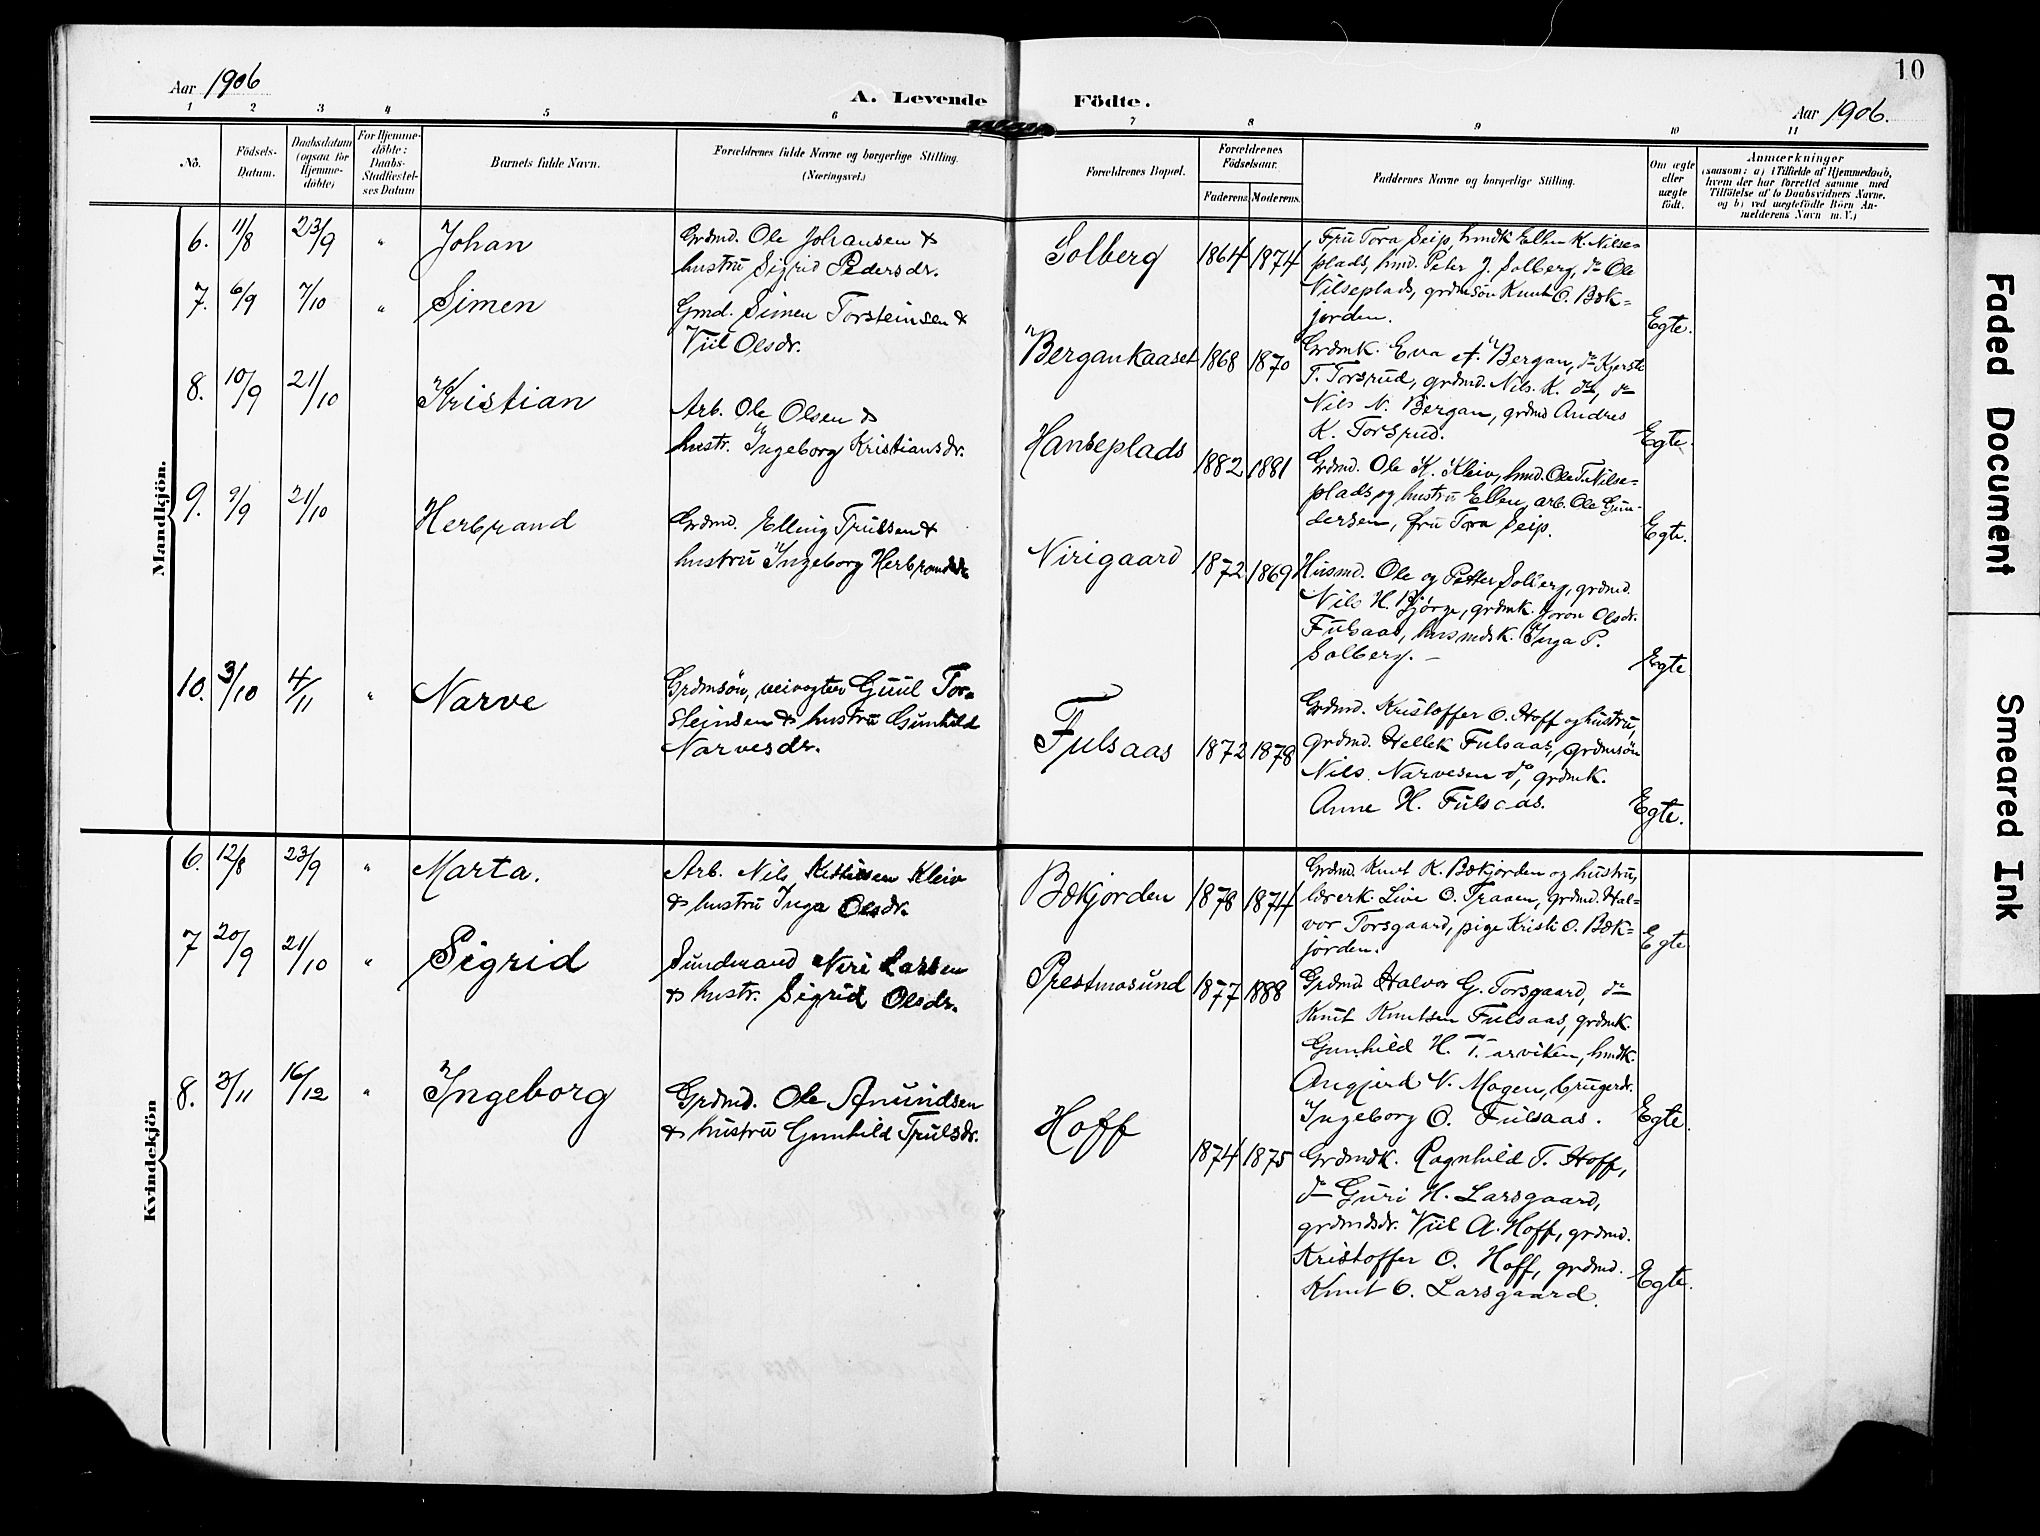 10
Aar 1906
A. Levende Födte.
Aar 1906.
1 2 3 4 5 6 7 8 9 10 11
No.
Födsels-
Datum.
Daabsdatum
(ogsaa for
Hjemme-
döbte)
For Hjemme-
döbte:
Daabs-
Stadfæstel-
ses Datum
Barnets fulde Navn.
Forældrenes fulde Navne og borgerlige Stilling.
(Næringsvei.)
Forældrenes Bopæl.
Forældrenes
Födselsaar.
Faderens. Moderens.
Faddernes Navne og borgerlige Stilling.
Om ægte
eller
uægte
födt.
Anmærkninger
(saasom: a) i Tilfælde af Hjemmedaab,
hvem der har forrettet samme med
Tilföielse af to Daabsvidners Navne.
og b) ved uægtefödte Börn An-
melderens Navn m. V.)
Mandkjön.
6. 11/8 23/9 " Johan
Grdmd. Ole Johansen &
hustru Sigrid Pedersdr.
Solberg 1864 1874
Fru Tora Seip, hmdk Ellen K. Nilse-
plads, hmd. Peter J. Solberg, do Ole
Nilseplads, grdmsön Knut O. Bæk-
jorden.
Egte.
7. 6/9 7/10 " Simen
Gmd. Simen Torsteinsen &
Viil Olsdr.
Bergankaaset 1868 1870
Grdmk. Eva A. Bergan, do Kjersti
T. Torsrud, grdmd. Nils K. do, do
Nils N. Bergan, grdmd Andres
K. Torsrud.
Egte.
8. 10/9 21/10 Kristian
Arb. Ole Olsen &
hustr. Ingeborg Kristiansdr.
Hanseplads 1882 1881
Grdmd. Ole K. Kleiv, hmd. Ole T. Nilse-
plads og hustru Ellen, arb. Ole Gun-
dersen, fru Tora Seip.
Egte.
9. 9/9 21/10 Herbrand
Grdmd. Elling Trulsen &
hustru Ingeborg Herbrandsdr.
Nirigaard 1872 1869
Husmd. Ole og Petter Solberg, grdmd.
Nils H. Björge, grdmk. Joron Olsdr.
Fulsaas, husmdsk. Inga P.
Solberg. –
Egte
10. 3/10 4/11 " Narve
Grdmsön, veivogter Guul Tor-
steinsen & hustru Gunhild
Narvesdr.
Fulsaas 1872 1878
Grdmd. Kristoffer O. Hoff og hustru,
grdmd. Hellek Fulsaas, grdmsön
Nils Narvesen do, grdmk.
Anne H. Fulsaas.
Egte.
Kvindekjön
6. 12/8 23/9 " Marta.
Arb. Nils Kittilsen Kleiv
& hustru Inga Olsdr.
Bækjorden 1878 1874
Grdmd. Knut K. Bækjorden og hustru,
lærerk. Live O. Traaen, grdmd. Hal-
vor Torsgaard, pige Kristi O. Bæk-
jorden.
Egte
7 20/9 21/10 " Sigrid
Sundmand Niri Larsen
& hustr. Sigrid Olsdr.
Prestmosund 1877 1888
Grdmd. Halvor G. Torsgaard, do
Knut Knutsen Fulsaas, grdmk.
Gunhild H. Tarviken, hmdk.
Angjerd N. Mogen, brugerdr.
Ingeborg O. Fulsaas.
Egte.
8. 3/11 16/12 " Ingeborg
Grdmd. Ole Anundsen
& hustru Gunhild Trulsdr.
Hoff 1874 1875
Grdmdk. Ragnhild T. Hoff,
do Guri H. Larsgaard,
grdmdsdr. Viil A. Hoff, grdmd.
Kristoffer O. Hoff, grdmd.
Knut O. Larsgaard.
Egte.
Faded Document
Smeared Ink